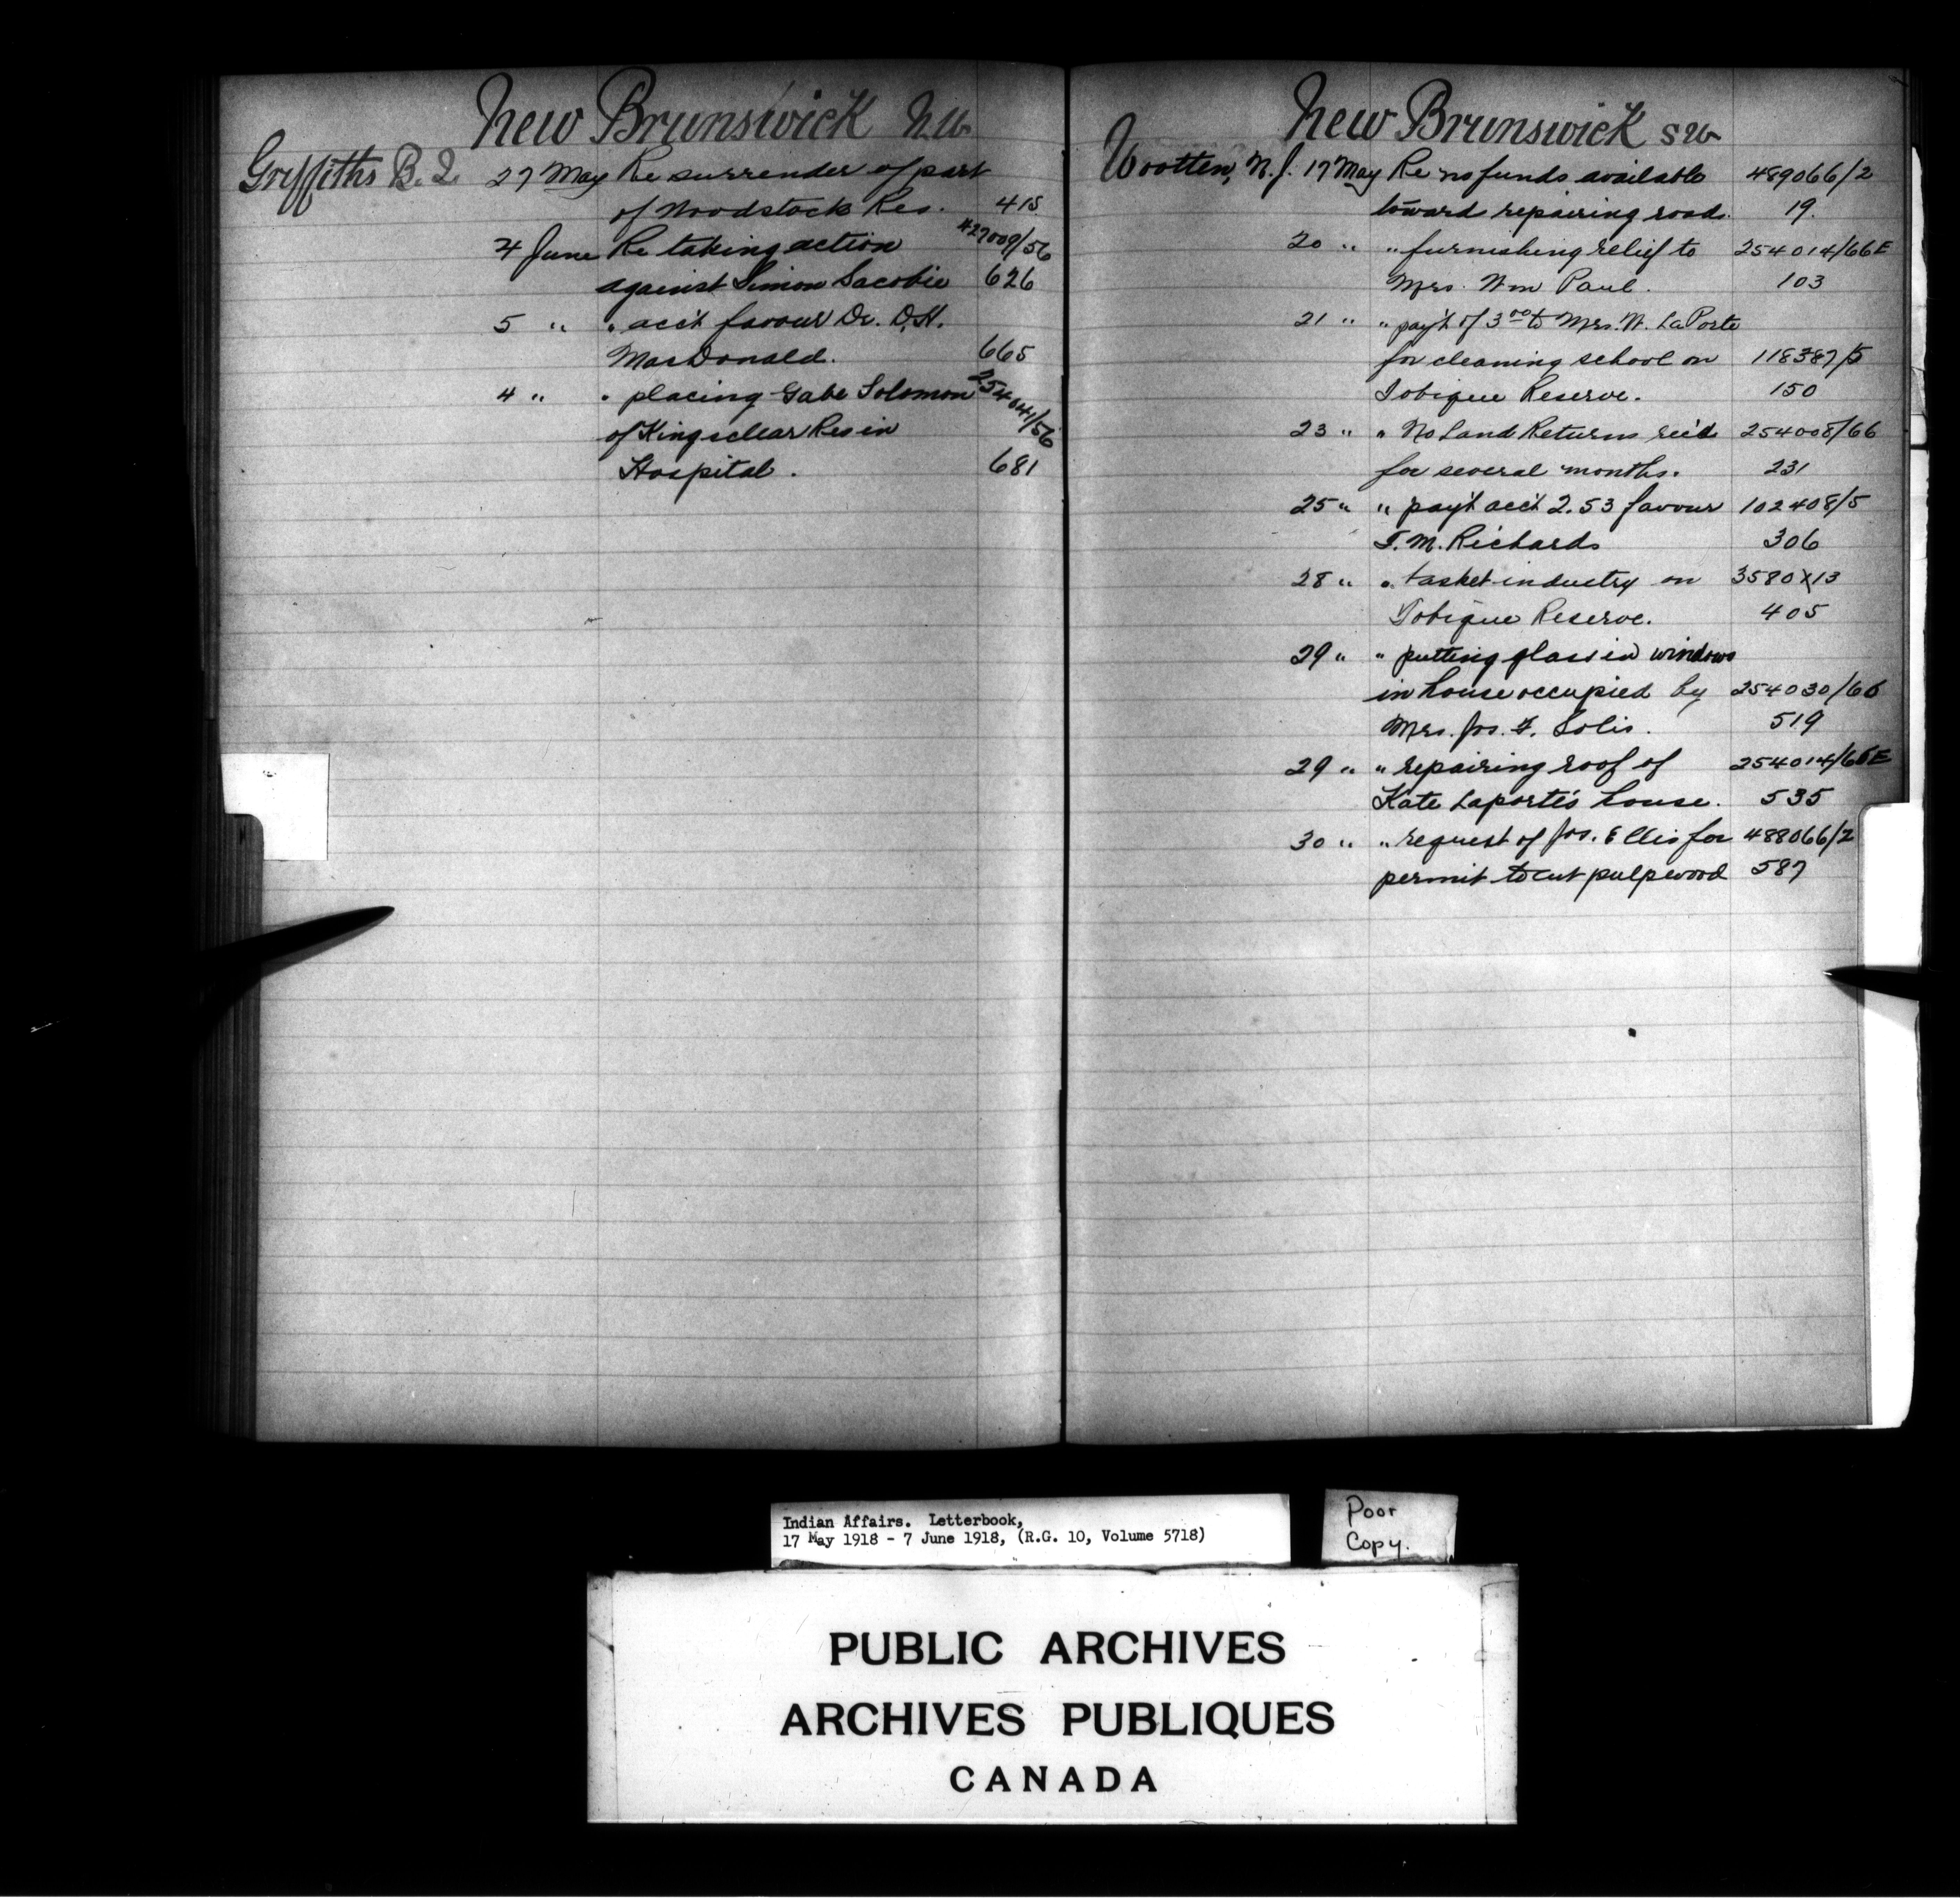 New Brunswick N.W.
Griffiths B. I. 27 May Re surrender of part
of Woodstock Res. 415
4 June Re taking action 427009/56
against Simon Sacobie 626
5 " " acc't favour Dr. D.H.
MacDonald. 665
4 " " placing Gabe Solomon 254041/56
of Kingsclear Res in
Hospital. 681
New Brunswick SW
Wootten, N.J. 17 May Re no funds available 489066/2
toward repairing road. 19.
20 " " furnishing relief to 254014/66E
Mrs. Wm Paul. 103
21 " " pay't of 3.00 to Mrs. W. LaPorte
for cleaning school on 118387/5
Tobique Reserve. 150
23 " " No Land Returns rec'd 254008/66
for several months. 231
25 " " pay't acc't 2.53 favour 102408/5
T.M. Richards 306
28 " " basket industry on 3580X13
Tobique Reserve. 405
29 " " putting glass in windows
in house occupied by 254030/66
Mrs. Jos. F. Solis. 519
29 " " repairing roof of 254014/66E
Kate Laporte's house. 535
30 " " request of Jos. Ellis for 488066/2
permit to cut pulpwood 587
Indian Affairs. Letterbook,
17 May 1918 - 7 June 1918, (R.G. 10, Volume 5718)
Poor
Copy.
PUBLIC ARCHIVES
ARCHIVES PUBLIQUES
CANADA